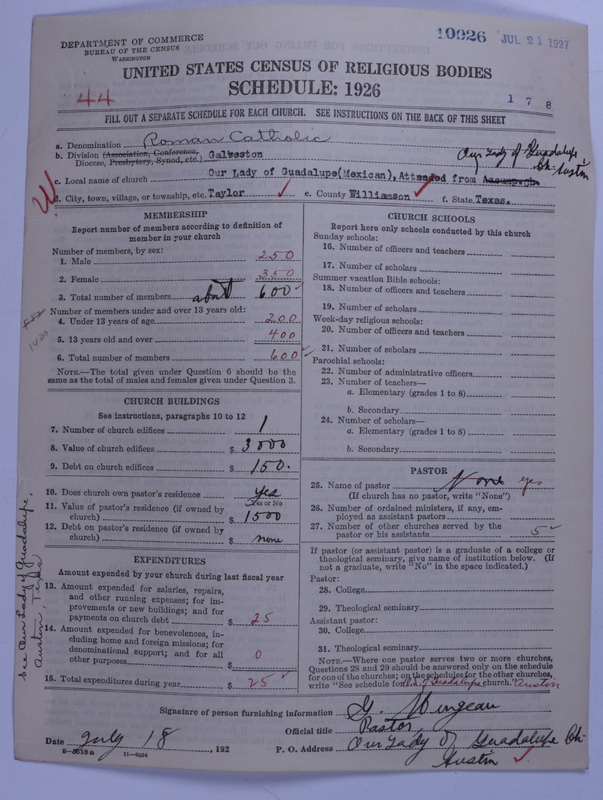 DEPARTMENT OF COMMERCE
BUREAU OF THE CENSUS
WASHINGTON
10926 JUL 21 1927
UNITED STATES CENSUS OF RELIGIOUS BODIES
SCHEDULE: 1926
44
1 7 8
FILL OUT A SEPARATE SCHEDULE FOR EACH CHURCH. SEE INSTRUCTIONS ON THE BACK OF THIS SHEET
a. Denomination Roman Catholic
b. Division (Association, Conference, Diocese, Presbytery, Synod, etc.) Galveston
Our Lady of Guadalupe Ch. Austin
c. Local name of church Our Lady of Guadalupe(Mexican), Attended from Assump.Ch.
W
d. City, town, village, or township, etc. Taylor e. County Williamson f. State Texas.
MEMBERSHIP
Report number of members according to definition of
member in your church
Number of members, by sex:
1. Male 250
2. Female 350
3. Total number of members about 600
Number of members under and over 13 years old:
4. Under 13 years of age 200
5. 13 years old and over 400
6. Total number of members 600
NOTE.—The total given under Question 6 should be the
same as the total of males and females given under Question 3.
CHURCH BUILDINGS
See instructions, paragraphs 10 to 12
7. Number of church edifices 1
8. Value of church edifices $ 3000
9. Debt on church edifices $ 150.
10. Does church own pastor's residence Yes
(Yes or No)
11. Value of pastor's residence (if owned by
church) $ 1500
12. Debt on pastor's residence (if owned by
church) $ none
EXPENDITURES
Amount expended by your church during last fiscal year
13. Amount expended for salaries, repairs,
and other running expenses; for im-
provements or new buildings; and for
payments on church debt $ 25
14. Amount expended for benevolences, in-
cluding home and foreign missions; for
denominational support; and for all
other purposes $ 0
15. Total expenditures during year $ 25
See Our Lady of Guadalupe,
Austin, Texas
CHURCH SCHOOLS
Report here only schools conducted by this church
Sunday schools:
16. Number of officers and teachers
17. Number of scholars
Summer vacation Bible schools:
18. Number of officers and teachers
19. Number of scholars
Week-day religious schools:
20. Number of officers and teachers
21. Number of scholars
Parochial schools:
22. Number of administrative officers
23. Number of teachers—
a. Elementary (grades 1 to 8)
b. Secondary
24. Number of scholars—
a. Elementary (grades 1 to 8)
b. Secondary
PASTOR
25. Name of pastor None yes
(If church has no pastor, write "None")
26. Number of ordained ministers, if any, em-
ployed as assistant pastors
27. Number of other churches served by the
pastor or his assistants 5
If pastor (or assistant pastor) is a graduate of a college or
theological seminary, give name of institution below. (If
not a graduate, write "No" in the space indicated.)
Pastor:
28. College
29. Theological seminary
Assistant pastor:
30. College
31. Theological seminary
NOTE.—Where one pastor serves two or more churches,
Questions 28 and 29 should be answered only on the schedule
for one of the churches; on the schedules for the other churches,
write "See schedule for O. L. of Guadalupe church." Austin
Signature of person furnishing information G. Mongeau
Official title Pastor
Date July 18, 192 P. O. Address Our Lady of Guadalupe Ch.
Austin
8-3619a 11-9604